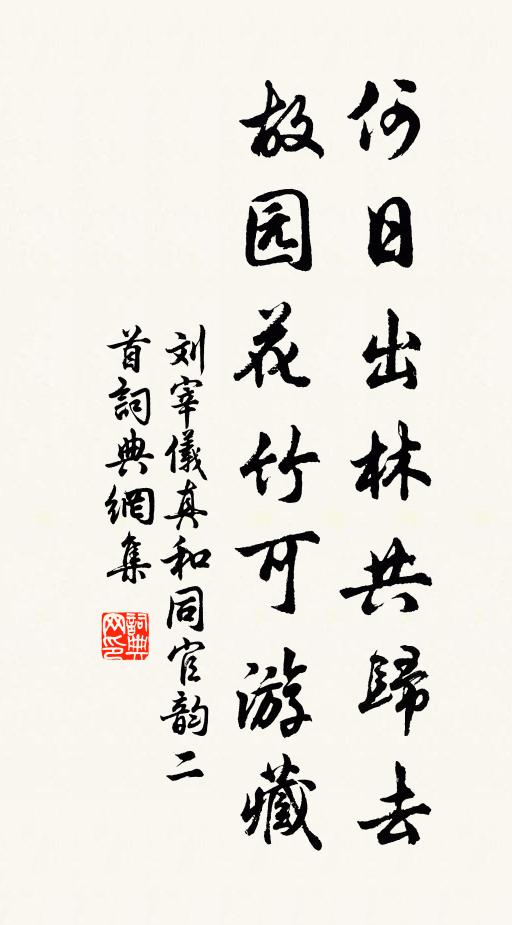 何日出林共歸去
故园花竹可游藏
刘宰儀真和同官韵二
首詞典網集
詞典网印